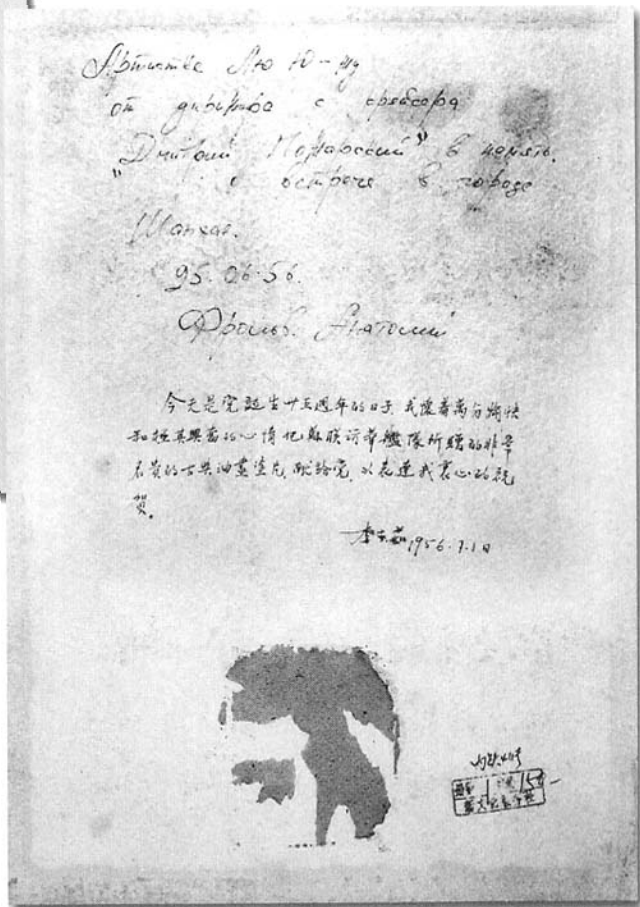 Артистке Лю Ю-
от с крейсера
"Дмитрий Пожарский" в память
о встрече в городе
Шанхае.
95.06.56.
Фролов Анатолий
今天是党誕生卅五週年的日子,我懷着萬分愉快
和極其興奮的心情把蘇联訪華艦隊所贈的非常
名贵的古典油畫集片,献給党,以表達我衷心的祝
贺。
1956.7.1日